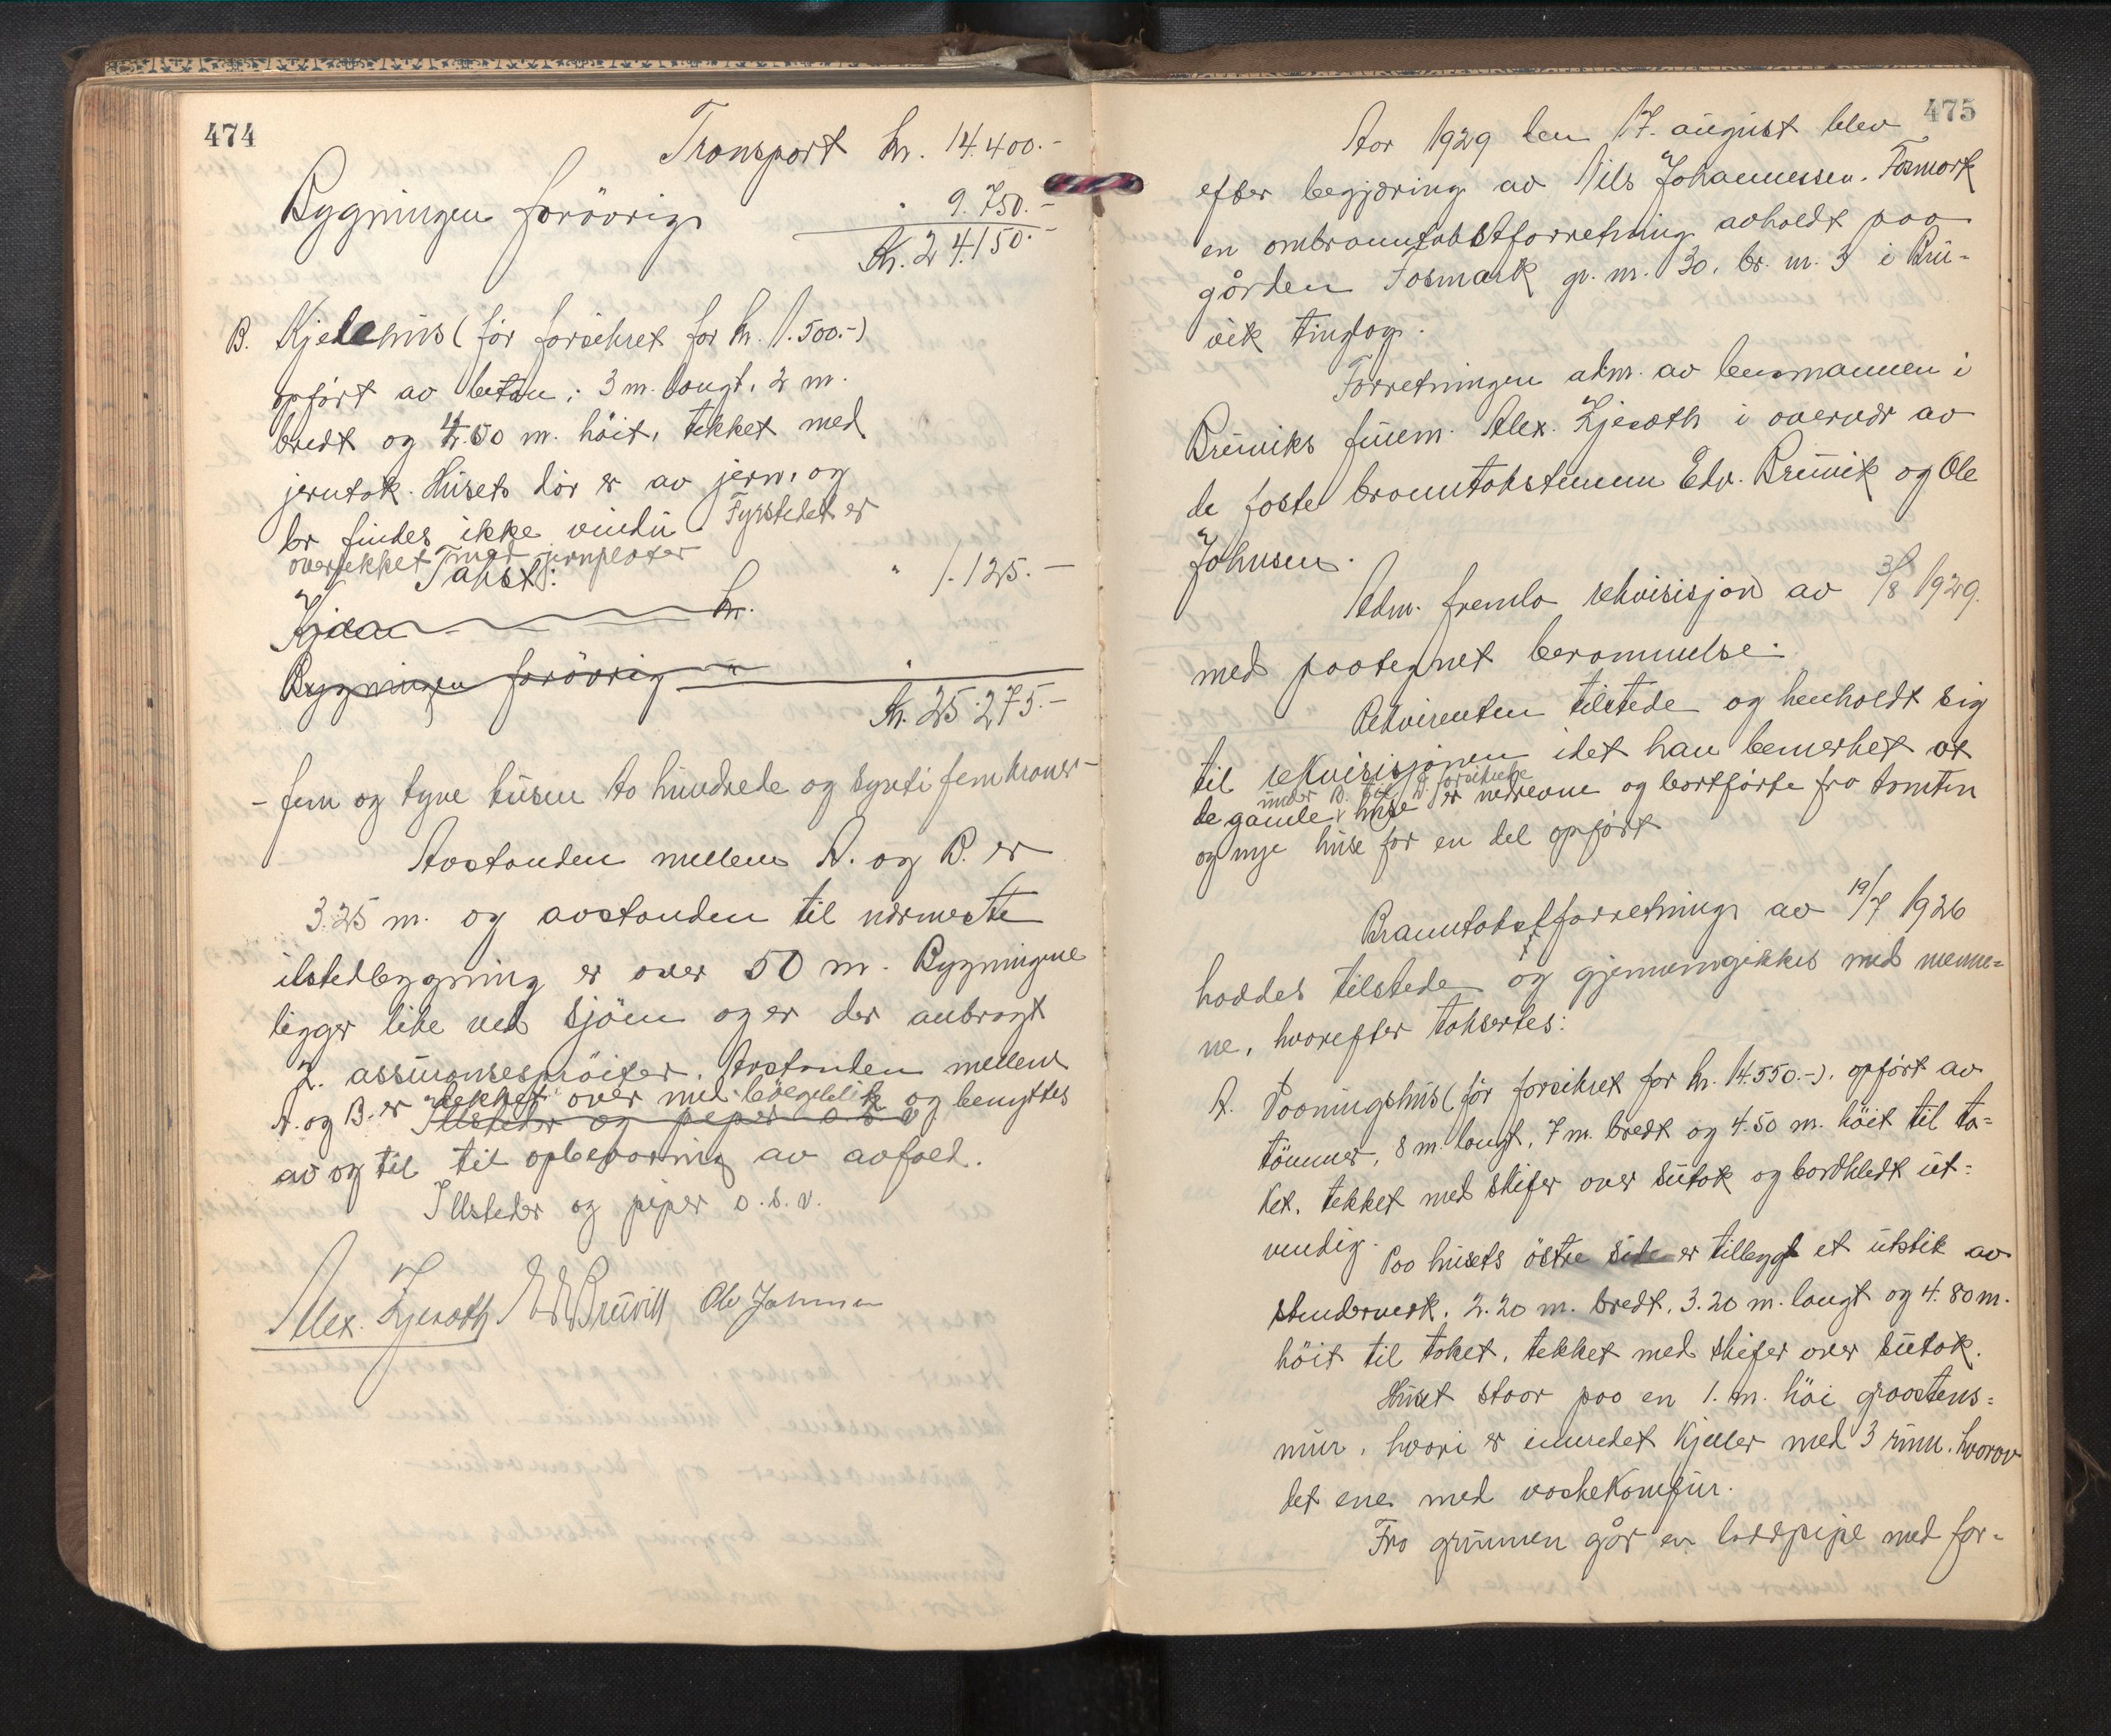 474
Transport kr. 14.400.-
Bygningen forövrig " 9.750.-
Kr. 24.150.-
B. Kjelehus (för forsikret for kr. 1.500.-)
opfört av beton, 3 m. langt, 2 m.
bredt og 4.50 m. höit, tekket med
jerntak. Husets dör er av jern, og
der findes ikke vindu. Fyrstedet er
overtekket med jernplater
Takst: " 1.125.-
kr.
Bygningen forövrig "
Kr. 25.275.-
- fem og tyve tusen to hundrede og sytti fem kroner -
Avstanden mellem A. og B. er
3.25 m. og avstanden til nærmeste
ilstedbygning er over 50 m. Bygningene
ligger like ved sjöen og er der anbragt
2. assuransespröiter. Avstanden mellem
A. og B. er tekket over med bölgeblik og benyttes
Ilsteder og piper o. s. v.
av og til til opbevaring av avfald.
Ilsteder og piper o. s. v.
Alex. Gjesath Edv Bruvik Ole Johnsen
475
Aar 1929 den 17. august blev
efter begjæring av Nils Johannessen Fosmark
en ombranntakstforretning avholdt paa
gården Fosmark gr. nr. 30, br. nr. 3 i Bru-
vik tinglag.
Forretningen adm. av lensmannen i
Bruviks fullm. Alex. Gjesath i overvær av
de faste branntakstmenn Edv. Bruvik og Ole
Johnsen.
Adm. fremla rekvisisjon av 3/8 1929.
med paategnet berammelse.
Rekvirenten tilstede og henholdt sig
til rekvisisjonen idet han bemerket at
under B. til D. forsikrede
de gamle huse er nedrevne og bortförte fra tomten
og nye huse for en del opfört
Branntakstforretning av 19/7 1926
havdes tilstede og gjennemgikkes med menne=
ne, hvorefter takseres:
A. Vaaningshus (för forsikret for kr. 14.550.-), opfört av
tömmer, 8 m. langt, 7 m. bredt og 4.50 m. höit til ta=
ket, tekket med skifer over sutak og bordkledt ut=
vendig. Paa husets östre side er tilbygt et utstik av
stenderverk, 2.20 m. bredt, 3.20 m. langt og 4.80 m.
höit til taket, tekket med skifer over sutak.
Huset staar paa en 1. m. höi graastens=
mur, hvori er innredet kjeller med 3 rum, hvorav
det ene med vaskekomfur.
Fra grunnen går en laddpipe med for=